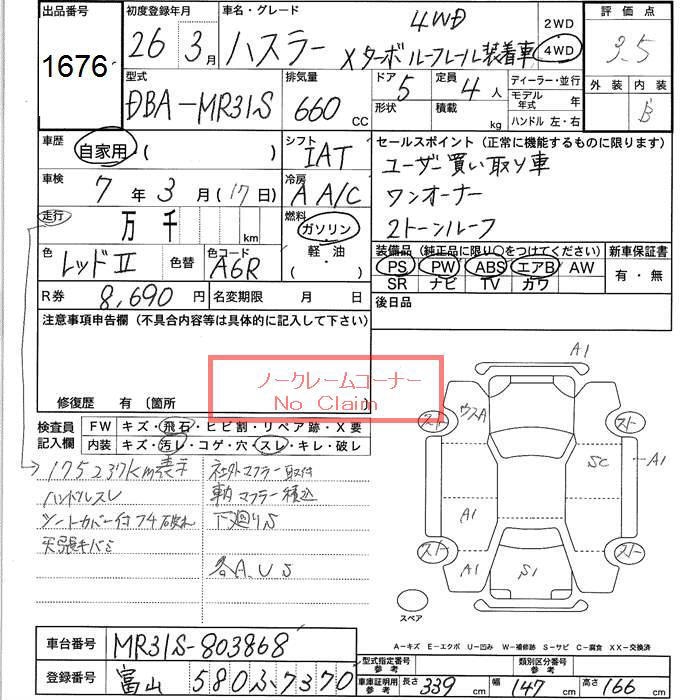 出品番号 初度登録年月 車名・グレード 評価点
1676 26 年 3 月 ハスラー 4WD Xターボルーフレール装着車 2WD 4WD 3.5
型式 排気量 ドア 定員 ディーラー・並行 外装 内装
DBA-MR31S 660 CC 5 4 人 モデル年式 年 B
形状 積載 kg ハンドル 左・右
車歴 シフト セールスポイント (正常に機能するものに限ります)
自家用・( ) IAT ユーザー買い取り車
車検 7 年 3 月 (17 日) 冷房 A A/C ワンオーナー
走行 万 千 km 燃料 ガソリン・軽油・( ) 2トーンルーフ
色 レッドⅡ 色替 色コード A6R 装備品 (純正品に限り○をつけてください) 新車保証書
PS PW ABS エアB AW 有・無
SR ナビ TV カワ
R券 8,690 円 名変期限 月 日 後日品
注意事項申告欄 (不具合内容等は具体的に記入して下さい)
ノークレームコーナー
No Claim
修復歴 有 〔箇所 〕
検査員記入欄 FW キズ・飛石・ヒビ割・リペア跡・X要
内装 キズ・汚レ・コゲ・穴・スレ・キレ・破レ
175237km表示 社外マフラー取付
ハンドルスレ 車内マフラー積込
シートカバー付 破れ 下廻りS
天張キバミ
各A.U.S
A1
ウスA
スト スト
SC
A1
A1
スト スト
A1
S1
スペア
A-キズ E-エクボ U-凹み W-補修跡 S-サビ C-腐食 XX-交換済
車台番号 MR31S-803868
型式指定番号 参考 類別区分番号 参考
登録番号 富山 580ふ7370
車庫証明用 参考 長さ 339 cm 幅 147 cm 高さ 166 cm